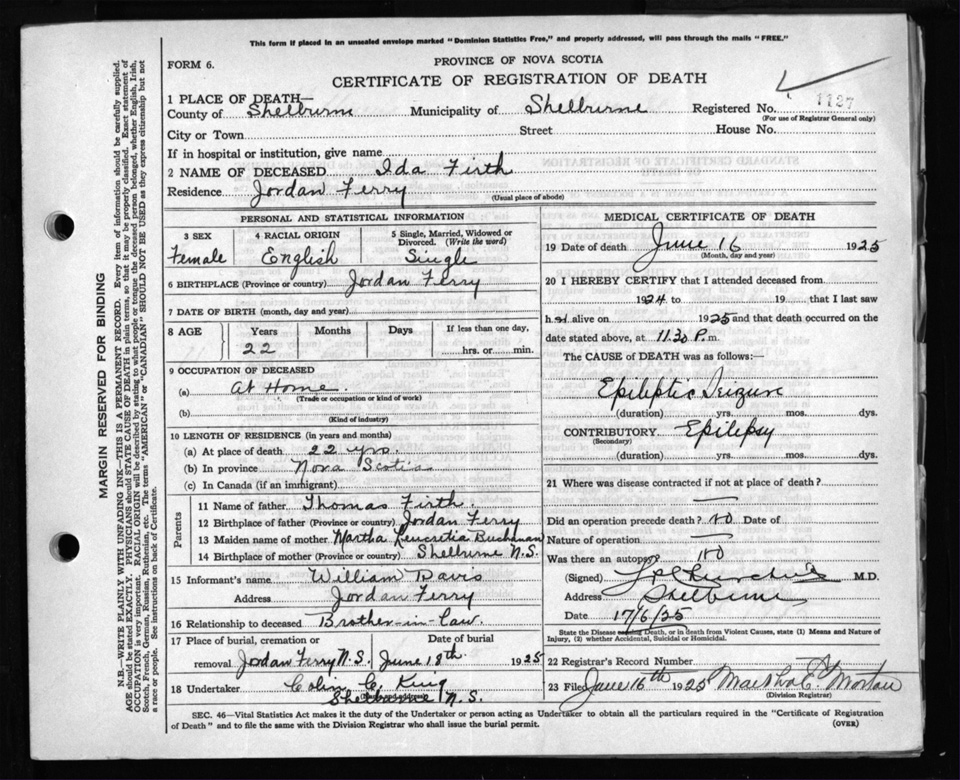 This form if placed in an unsealed envelope marked "Dominion Statistics Free," and properly addressed, will pass through the mails "FREE."
FORM 6.
PROVINCE OF NOVA SCOTIA
CERTIFICATE OF REGISTRATION OF DEATH
1 PLACE OF DEATH—
County of Shelburne Municipality of Shelburne Registered No. 1127
(For use of Registrar General only)
City or Town Street House No.
If in hospital or institution, give name
2 NAME OF DECEASED Ida Firth
Residence Jordan Ferry
(Usual place of abode)
PERSONAL AND STATISTICAL INFORMATION
3 SEX Female
4 RACIAL ORIGIN English
5 Single, Married, Widowed or Divorced. (Write the word) Single
6 BIRTHPLACE (Province or country) Jordan Ferry
7 DATE OF BIRTH (month, day and year)
8 AGE Years Months Days If less than one day,
22 hrs. or min.
9 OCCUPATION OF DECEASED
(a) At Home.
(Trade or occupation or kind of work)
(b)
(Kind of industry)
10 LENGTH OF RESIDENCE (in years and months)
(a) At place of death 22 yrs.
(b) In province Nova Scotia
(c) In Canada (if an immigrant)
Parents
11 Name of father Thomas Firth.
12 Birthplace of father (Province or country) Jordan Ferry
13 Maiden name of mother Martha Leucretia Buchanan
14 Birthplace of mother (Province or country) Shelburne N.S.
15 Informant's name William Davis
Address Jordan Ferry
16 Relationship to deceased Brother-in-law.
17 Place of burial, cremation or Date of burial
removal Jordan Ferry N.S. June 18th 1925
18 Undertaker Colin C. King
Shelburne N.S.
MEDICAL CERTIFICATE OF DEATH
19 Date of death June 16 1925
(Month, day and year)
20 I HEREBY CERTIFY that I attended deceased from
1924 to 19 that I last saw
h alive on 1925 and that death occurred on
date stated above, at 11.30 P.m.
The CAUSE of DEATH was as follows:—
Epileptic Seizure
(duration) yrs. mos. dys.
CONTRIBUTORY Epilepsy
(Secondary)
(duration) yrs. mos. dys.
21 Where was disease contracted if not at place of death?
Did an operation precede death? No Date of
Nature of operation
Was there an autopsy No
(Signed) M.D.
Address Shelburne
Date 17/6/25
State the Disease causing Death, or in death from Violent Causes, state (1) Means and Nature of Injury, (2) whether Accidental, Suicidal or Homicidal.
22 Registrar's Record Number
23 Filed June 16th 1925 Martha E. Morton
(Division Registrar)
SEC. 46—Vital Statistics Act makes it the duty of the Undertaker or person acting as Undertaker to obtain all the particulars required in the "Certificate of Registration
of Death" and to file the same with the Division Registrar who shall issue the burial permit. (OVER)
MARGIN RESERVED FOR BINDING
N.B.—WRITE PLAINLY WITH UNFADING INK—THIS IS A PERMANENT RECORD. Every item of information should be carefully supplied.
AGE should be stated EXACTLY. PHYSICIANS should STATE CAUSE OF DEATH in plain terms, so that it may be properly classified. Exact statement of
OCCUPATION is very important. RACIAL ORIGIN will be described by stating to what people or tongue the deceased person belonged, whether English, Irish,
Scotch, French, German, Russian, Ruthenian, etc. The terms "AMERICAN" or "CANADIAN" SHOULD NOT BE USED as they express citizenship but not
a race or people. See instructions on back of Certificate.